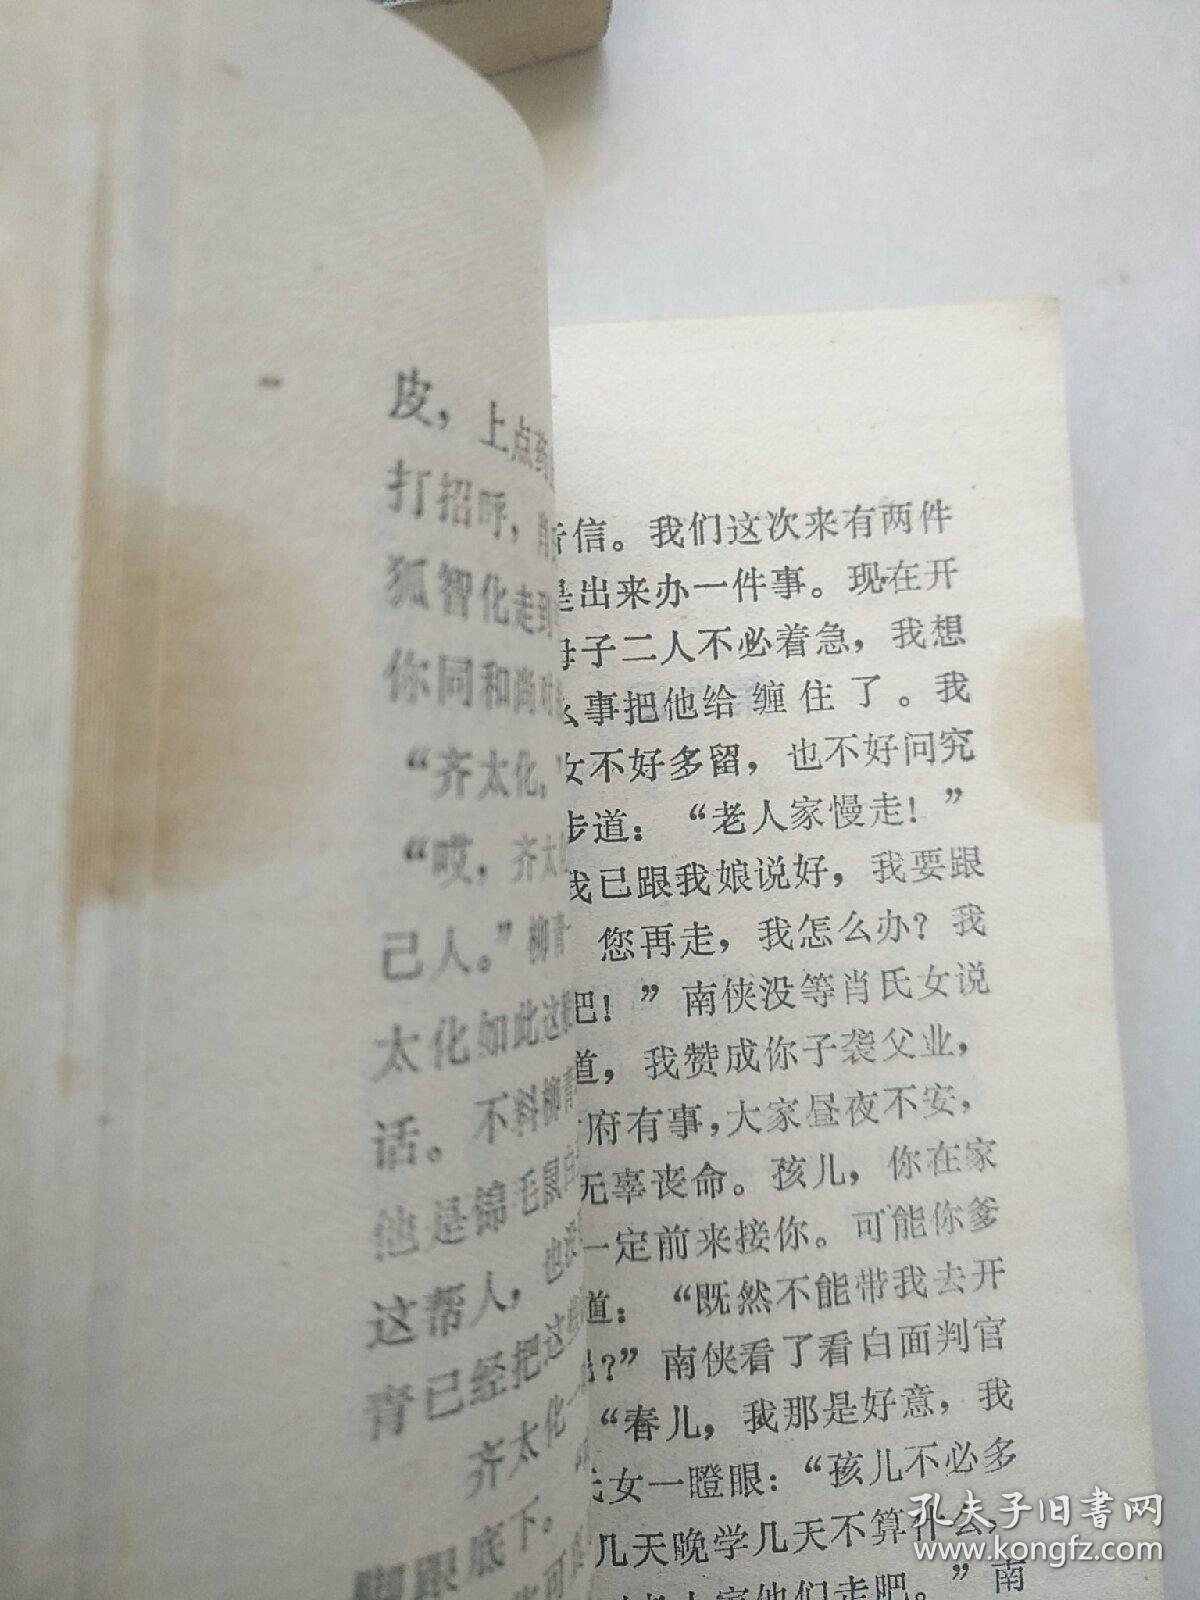 皮，上点药
打招呼，肖
狐智化走到
你同和尚对
“齐太化，
“哎，齐太
己人。”柳青
太化如此这
话。不料柳青
他是锦毛鼠白
这帮人，也
青已经把这些
齐太化一
脚跟底下。
信。我们这次来有两件
是出来办一件事。现在开
母子二人不必着急，我想
么事把他给缠住了。我
女不好多留，也不好问究
步道：“老人家慢走！”
我已跟我娘说好，我要跟
您再走，我怎么办？我
吧！”南侠没等肖氏女说
道，我赞成你子袭父业，
府有事，大家昼夜不安，
无辜丧命。孩儿，你在家
一定前来接你。可能你爹
道：“既然不能带我去开
？”南侠看了看白面判官
“春儿，我那是好意，我
氏女一瞪眼：“孩儿不必多
几天晚学几天不算什么，
老人家他们走吧。”南
孔夫子旧书网
www.kongfz.com